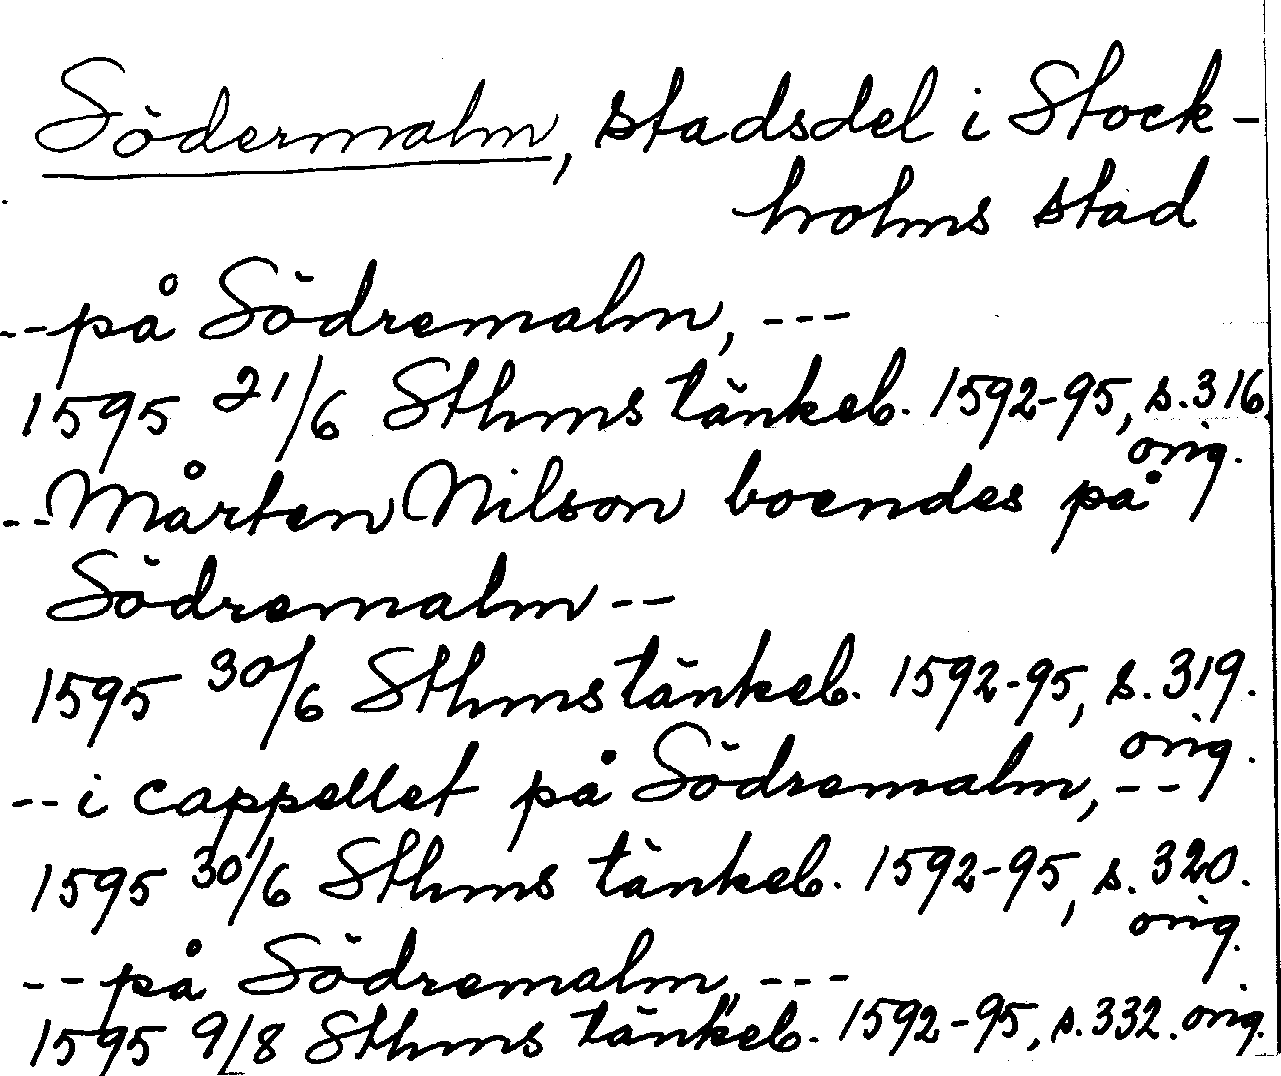 Södermalm, stadsdel i Stock-
holms stad
--på Södremalm, ---
1595 21/6 Sthms tänkeb. 1592-95, s. 316.
orig.
--Mårten Nilson boendes på
Södremalm--
1595 30/6 Sthms tänkeb. 1592-95, s. 319.
orig.
--i cappellet på Södremalm, --
1595 30/6 Sthms tänkeb. 1592-95, s. 320.
orig.
--på Södremalm, ---
1595 9/8 Sthms tänkeb. 1592-95, s. 332. orig.